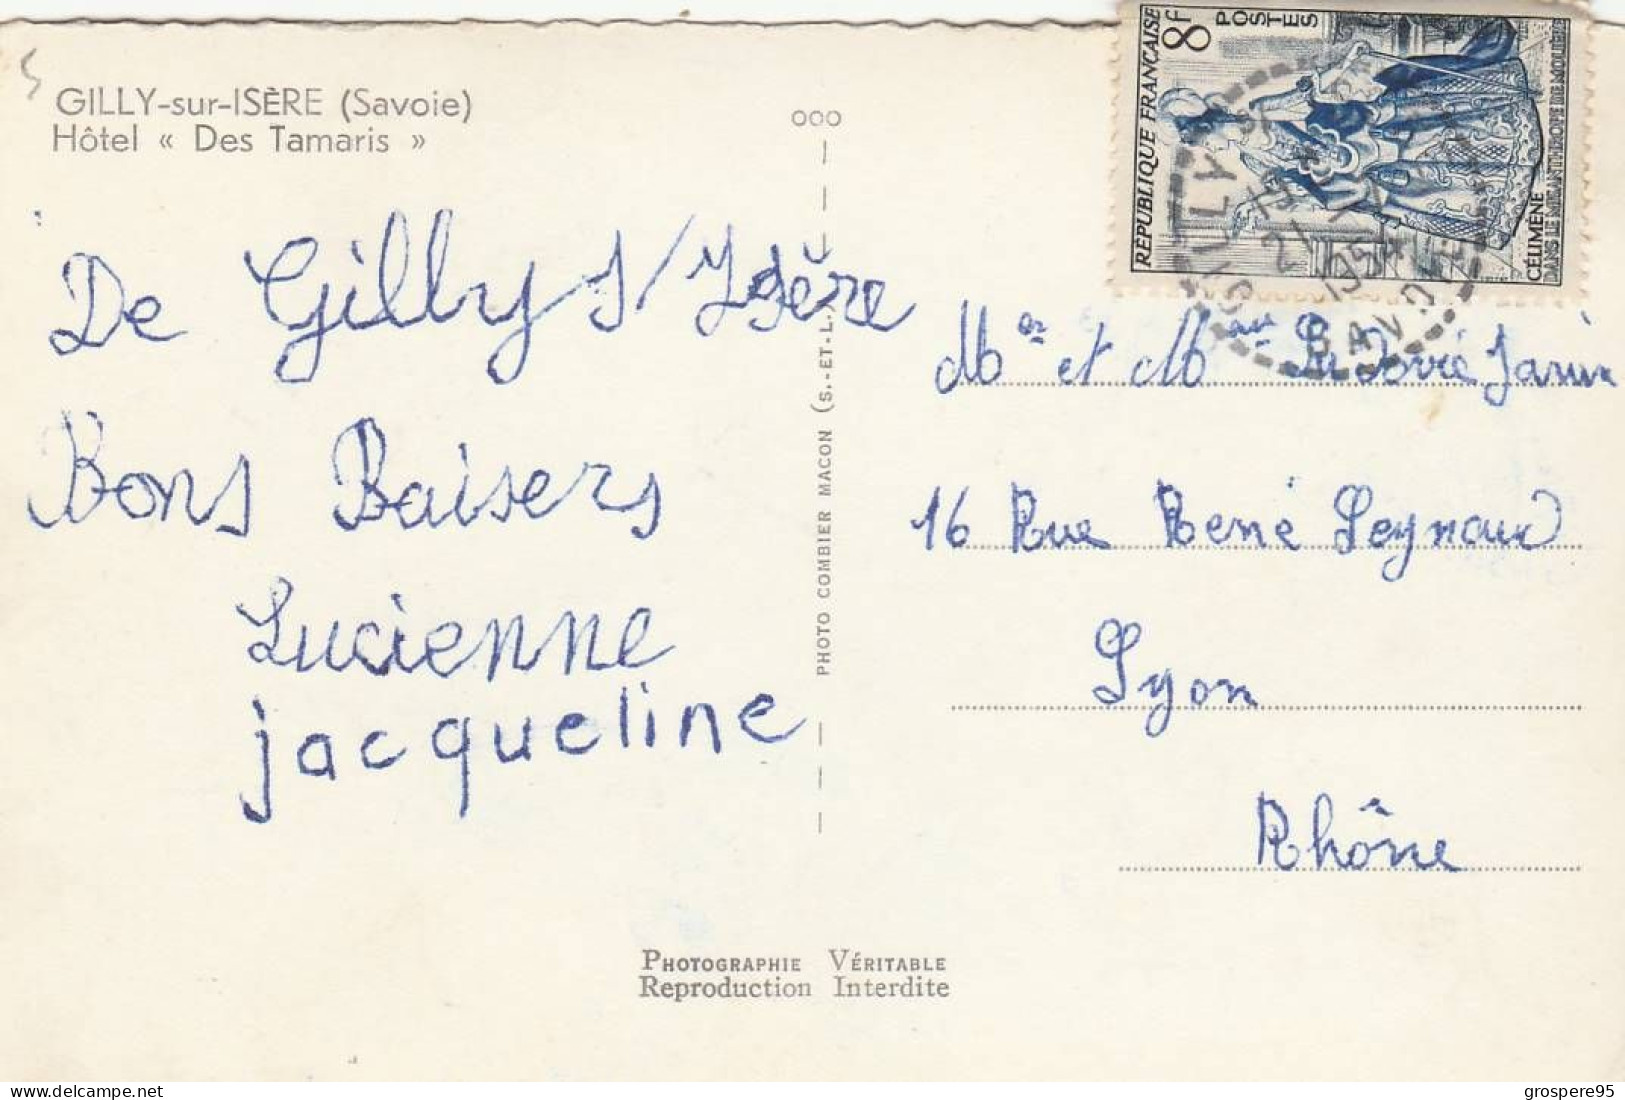 GILLY-sur-ISÈRE (Savoie)
Hôtel « Des Tamaris »
De Gilly s/Isère
Bons Baisers
Lucienne
jacqueline
PHOTO COMBIER MACON (S.-ET-L.)
RÉPUBLIQUE FRANÇAISE
8f
POSTES
CÉLIMÈNE
DANS LE MISANTHROPE DE MOLIÈRE
GILLY
19
21
1954
SAVOIE
Mer et Mme Janin
16 Rue René Leynaud
Lyon
Rhône
PHOTOGRAPHIE VÉRITABLE
Reproduction Interdite
grospere95